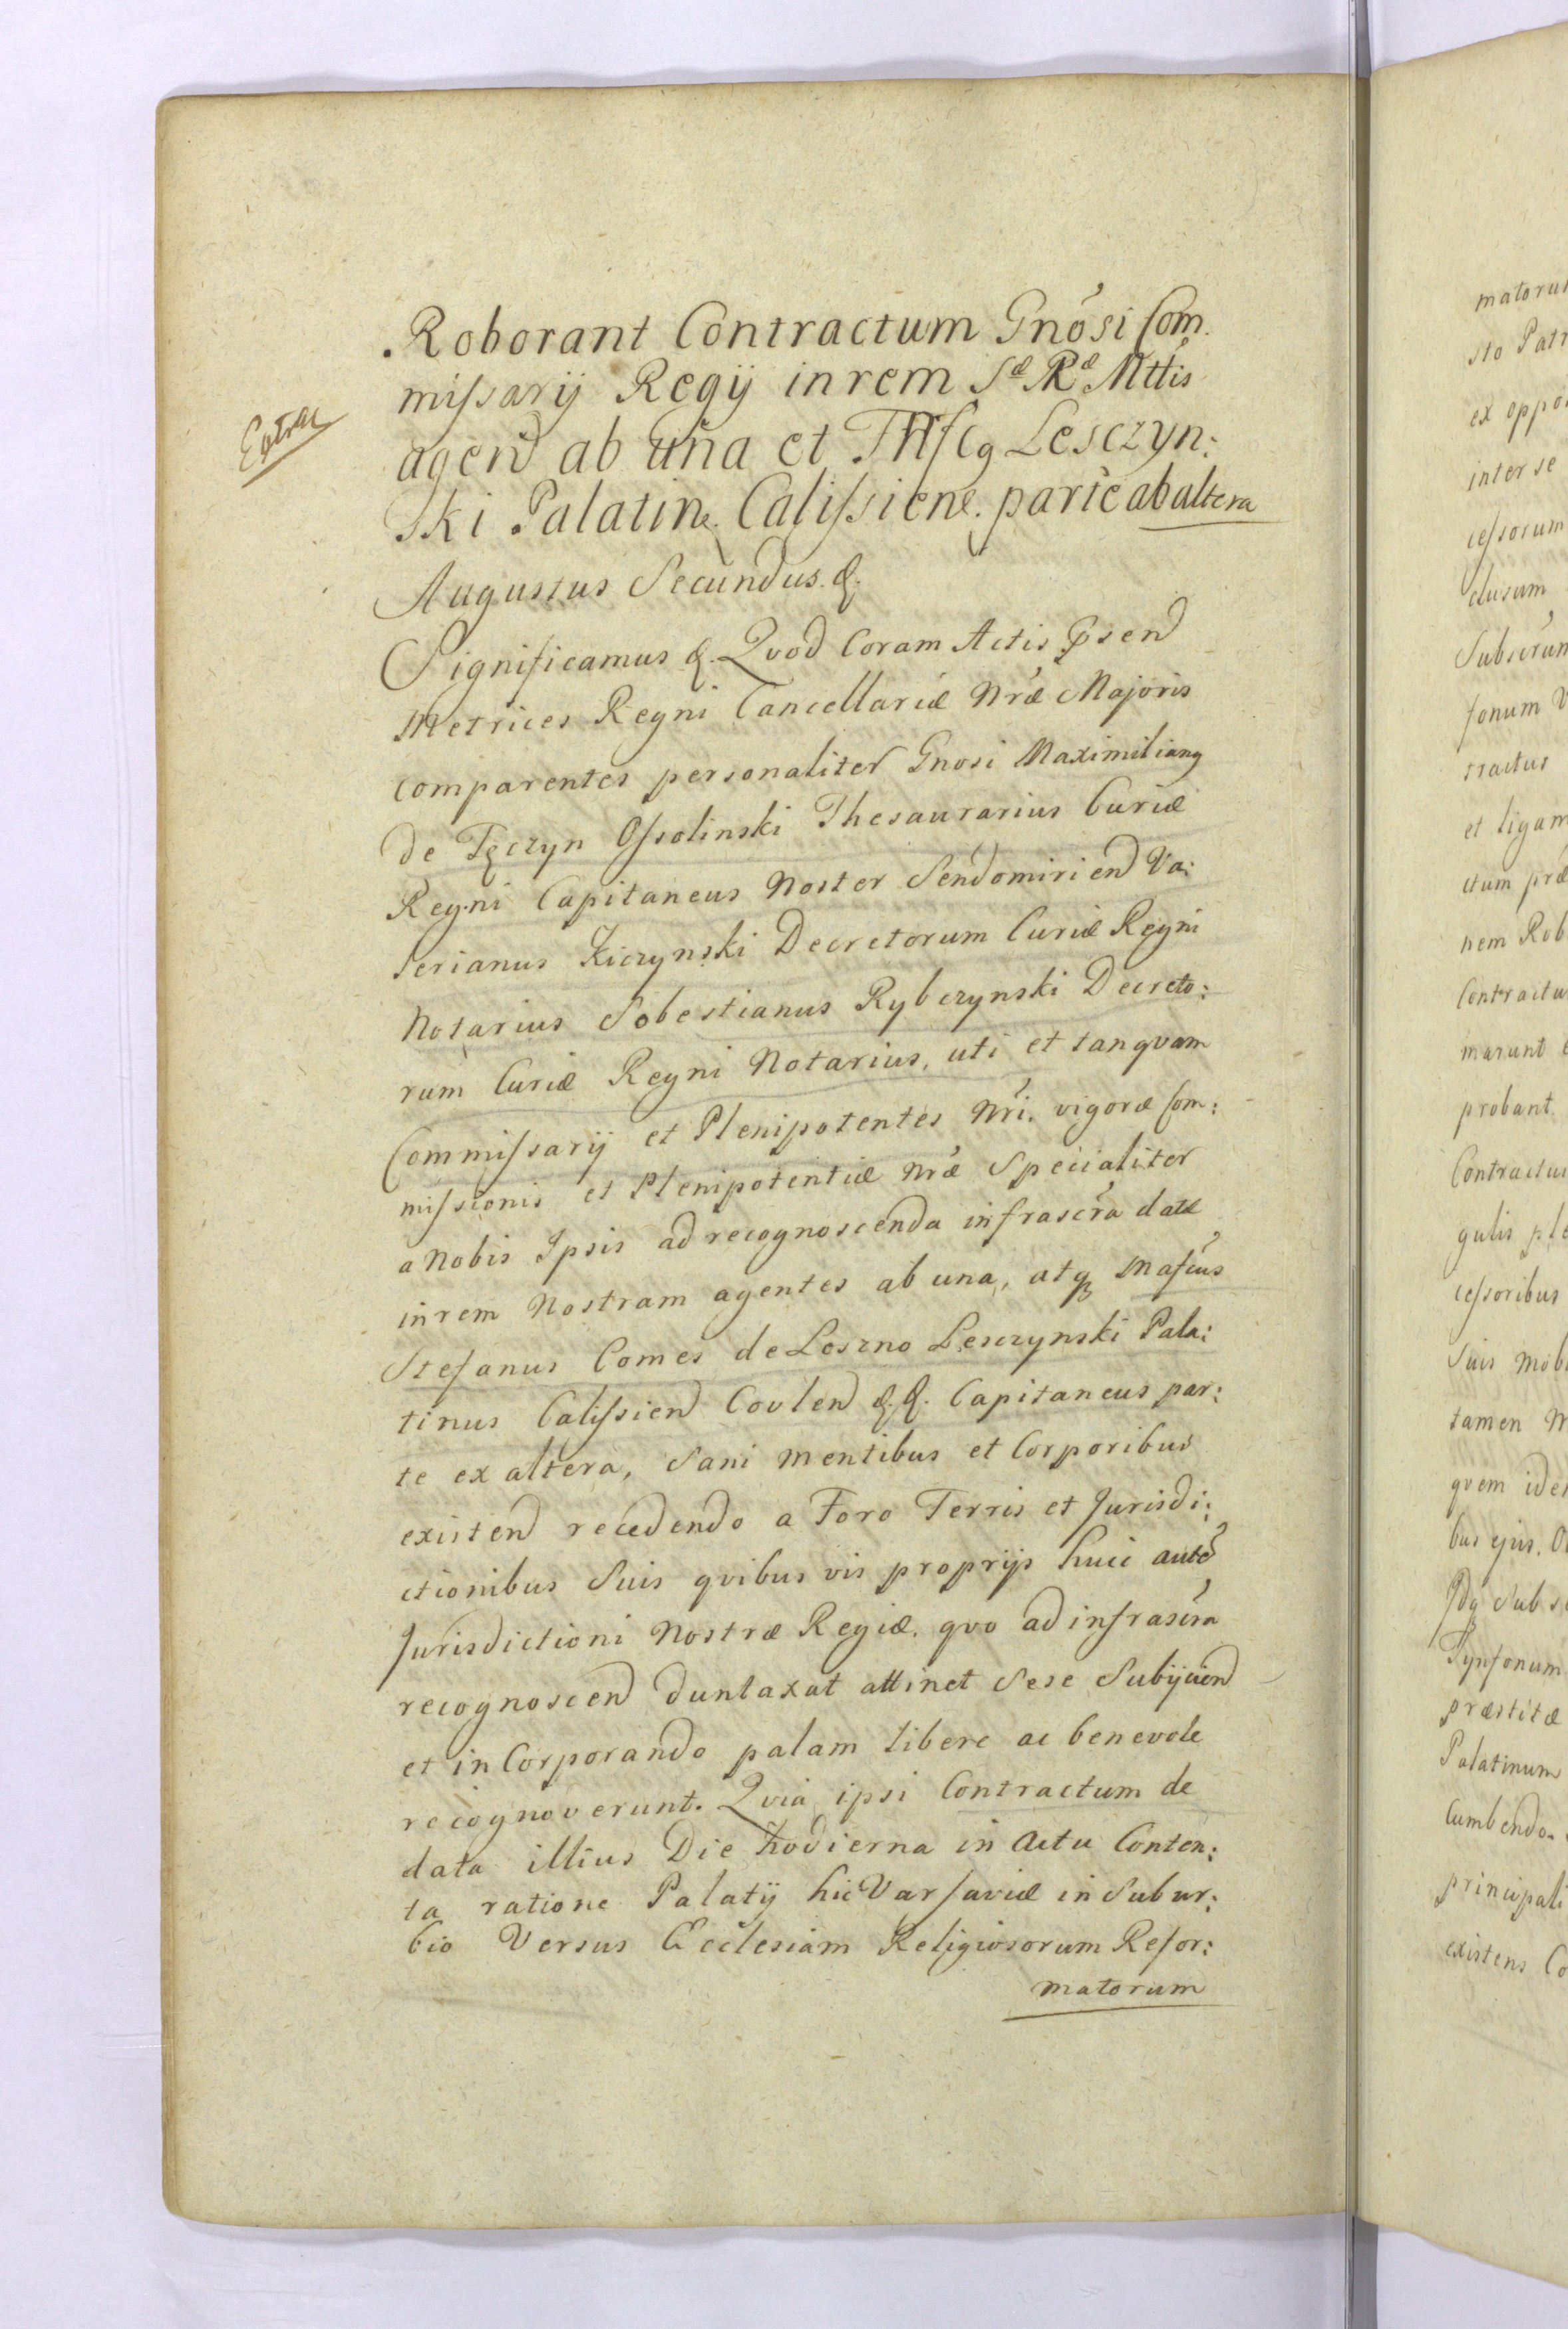 Roborant Contractum Gnosi Com.
missarij Regij in rem Sæ Ræ Mttis
Extrac
agend ab una et Lesczyn:
ski Palatin. Calissiene. parte ab altera
Augustus Secundus. &.
Significamus &. Qvod Coram Actis Psend
Metrices Regni Cancellariæ Nræ Majoris
comparentes personaliter Gnosi Maximiliang
de Tęczyn Ossolinski Thesaurarius Curiæ
Regni Capitaneus Noster Sendomiriend Va:
lerianus Kiczynski Decretorum Curiæ Regni
Notarius Sobestianus Rybczynski Decreto:
rum Curiæ Regni Notarius, uti et tanqvam
Commissarij et Plenipotentes Nri. vigoræ Com:
missionis et Plenipotentiæ Nræ Specialiter
a Nobis Ipsis ad recognoscenda infrascra datæ
in rem Nostram agentes ab una, atq Mafcus
Stefanus Comes de Leszno Lesczynski Pala:
tinus Calissiend Covlend &.&. Capitaneus par:
te ex altera, Sani mentibus et Corporibus
existend recedendo a Foro Terris et Jurisdi:
ctionibus Suis qvibus vis proprijs huic aute
Jurisdictioni Nostræ Regiæ. qvo ad infrascra
recognoscend duntaxat attinet Sese Subijciend
et in Corporando palam libere ac benevole
recognoverunt. Qvia ipsi Contractum de
data illius Die hodierna in Actu Conten:
ta ratione Palatij hic Varsaviæ in Subur:
bio Versus Ecclesiam Religiosorum Refor:
matorum
sto Patr
ex oppo
inter se
cessorum
clusum
Subscrun
fonum V
ractus
et ligam
ctum præ
nem Rob
Contractu
marunt
probant.
Contractus
gulis ple
cessoribus
Suis Mobi
tamen
qvem ide
bus ejus.
Subs
Tynfonum
præstitæ
Palatinum
Cumbendo.
principali
existens Co